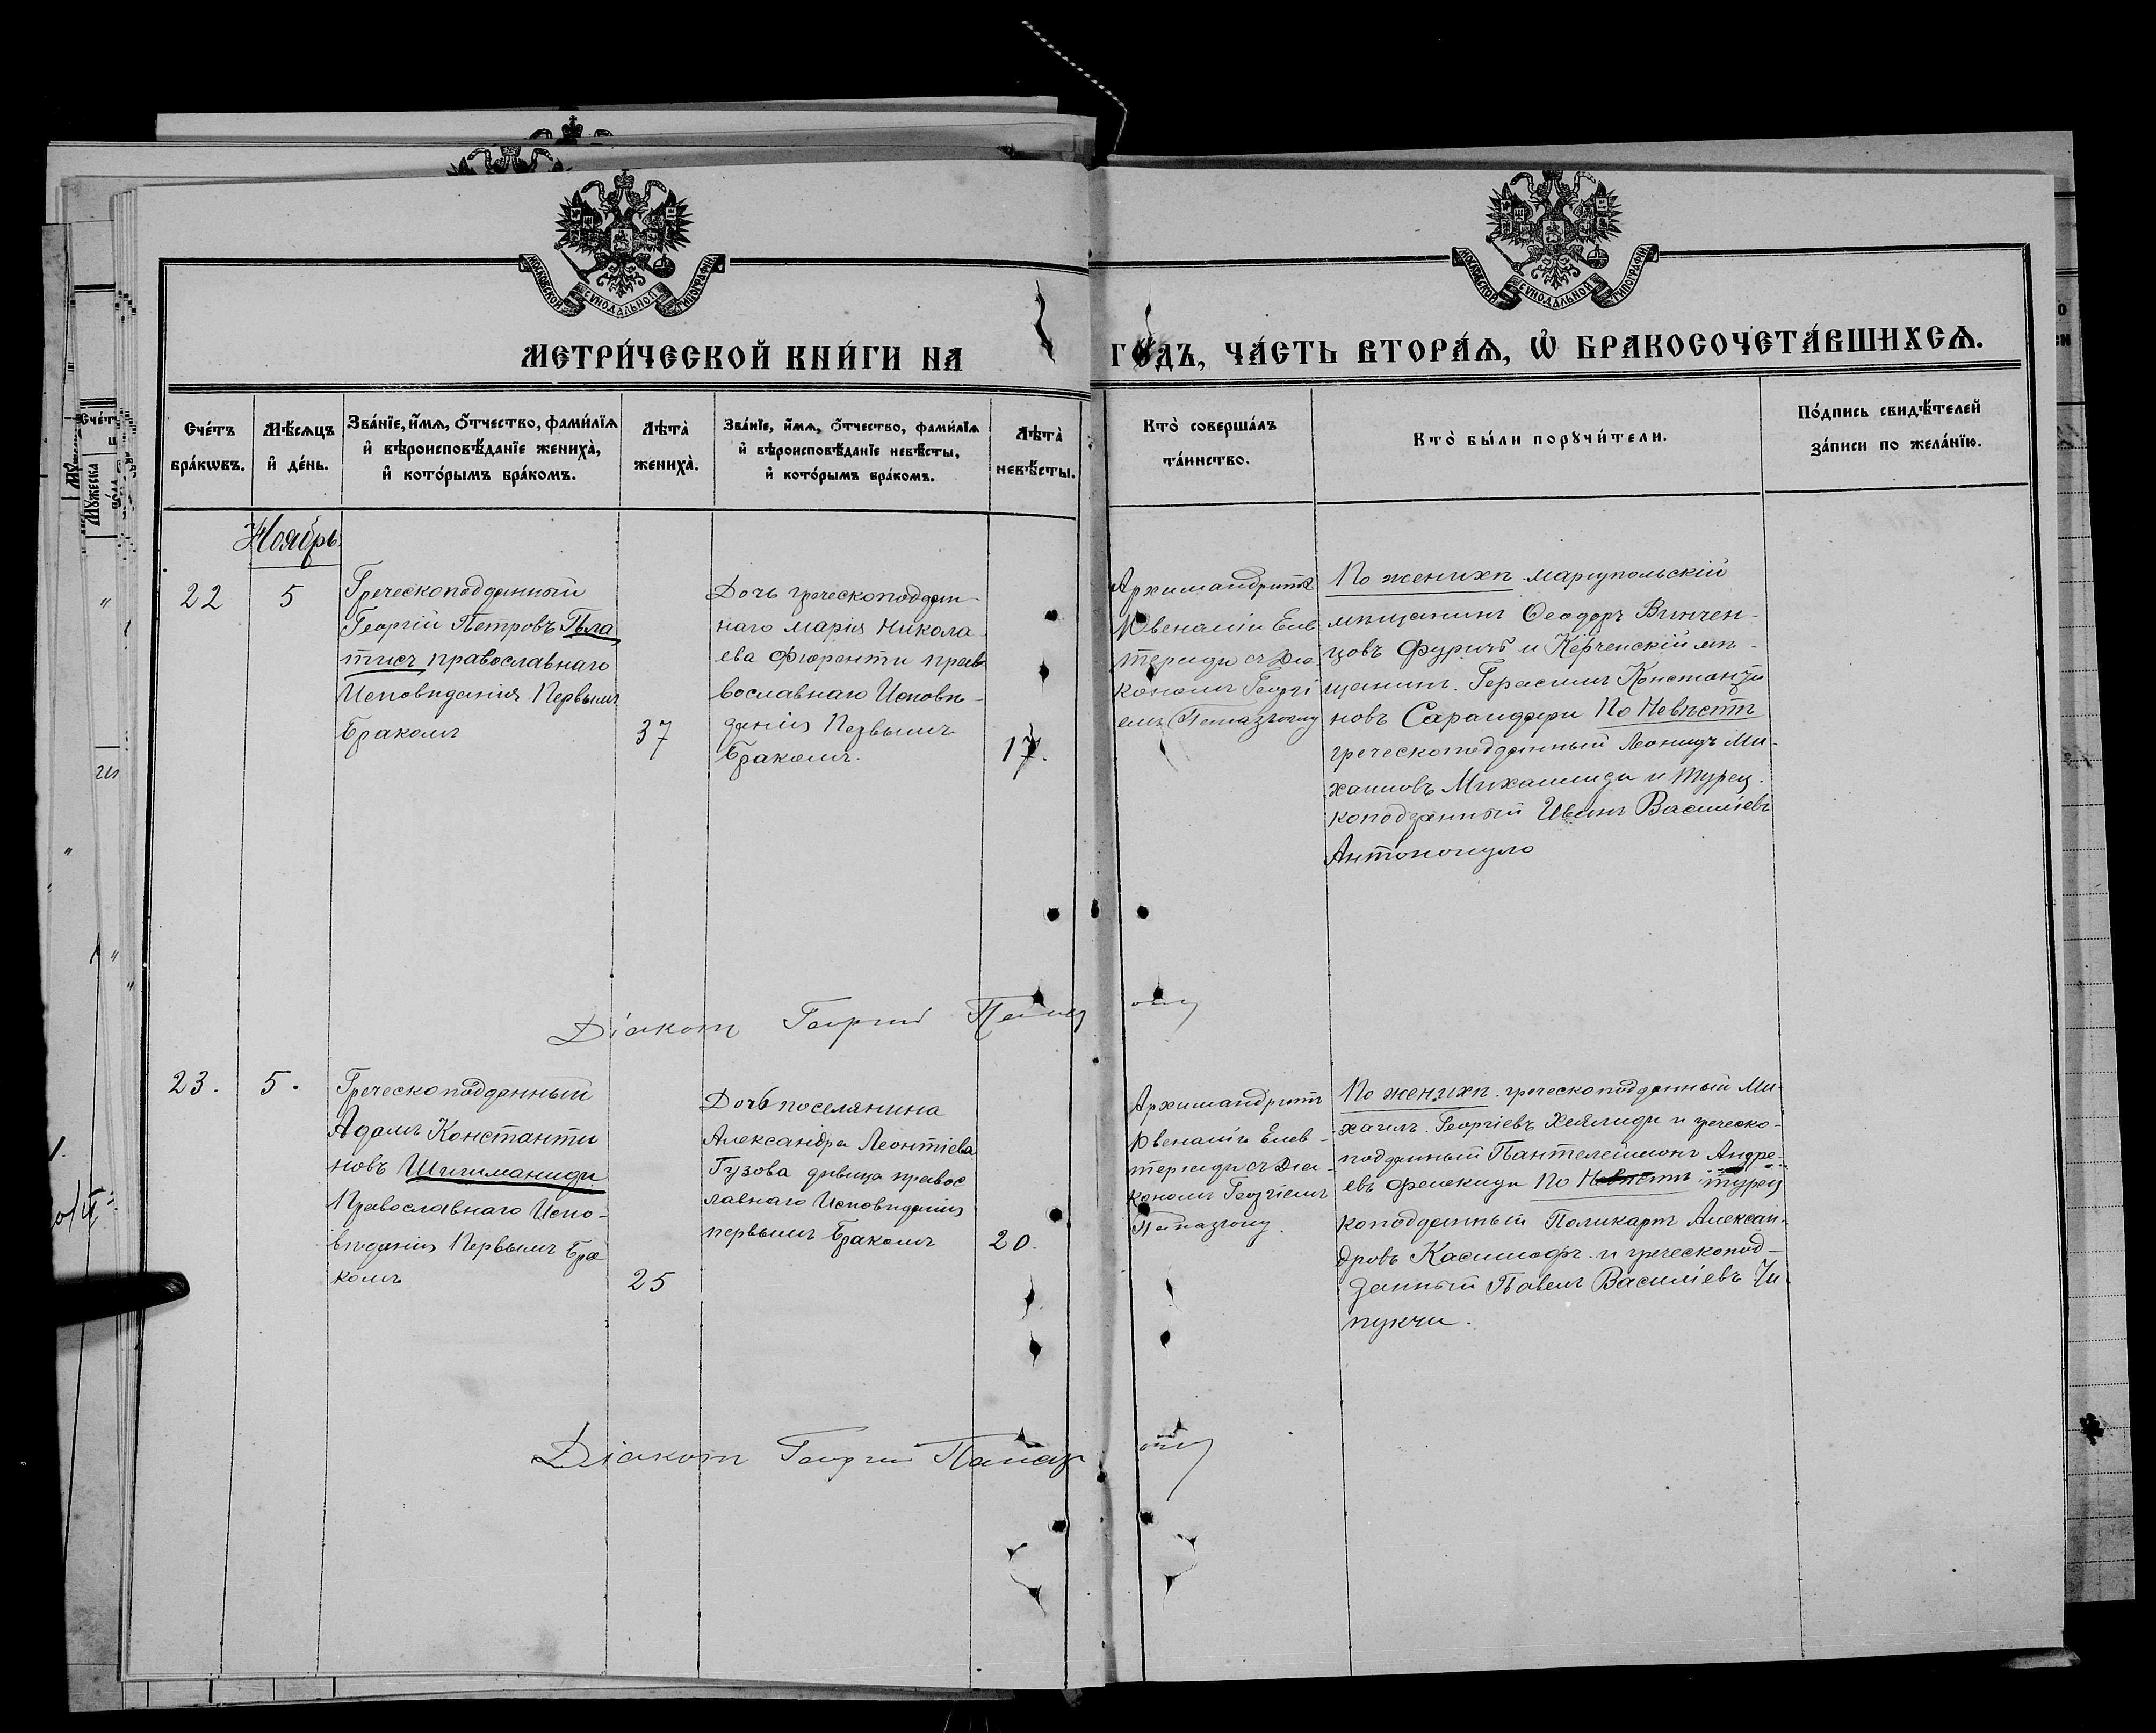 МОСКОВСКОЙ СѴНОДАЛЬНОЙ ТИПОГРАФІИ
МОСКОВСКОЙ СѴНОДАЛЬНОЙ ТИПОГРАФІИ
МЕТРИ́ЧЕСКОЙ КНИ́ГИ НА ГО́ДЪ, ЧА́СТЬ ВТОРА́Ѧ, Ѡ҆ БРАКОСОЧЕТА́ВШИХСѦ.
Сче́тъ
бра́кѡвъ.
Мѣ́сѧцъ
и҆ де́нь.
Зва́нїе, и҆́мѧ, ѻ҆́тчество, фами́лїѧ
и҆ вѣроисповѣ́данїе жениха̀,
и҆ кото́рымъ бра́комъ.
Лѣта̀
жениха̀.
Зва́нїе, и҆́мѧ, ѻ҆́тчество, фами́лїѧ
и҆ вѣроисповѣ́данїе невѣ́сты,
и҆ кото́рымъ бра́комъ.
Лѣта̀
невѣ́сты.
Кто̀ соверша́лъ
та́инство.
Кто̀ бы́ли порꙋчи́тели.
По́дпись свидѣ́телей
за́писи по жела́нїю.
Ноябрь.
22
5
Греческоподданный
Георгій Петровъ Пла
тисъ православнаго
Исповѣданія Первымъ
Бракомъ
37
Дочь греческоподдан-
наго Марія Никола-
ева Фіоренти прав
вославнаго Исповѣ-
данія Первымъ
Бракомъ.
17.
Архимандритъ
Ювеналій Елев
теріади съ Діа-
кономъ Георгі
емъ
По женихѣ маріупольскій
мѣщанинъ Ѳеодоръ Винчен-
цовъ Фуричъ и Керченскій мѣ-
щанинъ Герасимъ Константи
новъ Сарандефи По Невѣстѣ
греческоподданный Леонидъ Ми-
хаиловъ Михаилиди и Турец
коподданный Иванъ Василіевъ
Антонопуло
Діаконъ Георгій
23.
5.
Греческоподданный
Адамъ Константи
новъ Шишманиди
Православнаго Испо-
вѣданія Первымъ Бра
комъ
25
Дочь поселянина
Александра Леонтіева
Гузова дѣвица правос
лавнаго Исповѣданія
первымъ Бракомъ
20.
Архимандритъ
Ювеналій Елев-
теріади съ Діа-
кономъ Георгіемъ
По женихѣ греческоподданный Ми-
хаилъ Георгіевъ Хейлиди и греческо-
подданный Пантелеймонъ Андре-
евъ Фенекиди По Невѣстѣ турец
коподданный Поликарпъ Алексан-
дровъ Касимофъ и греческопод-
данный Павелъ Василіевъ Чи
пукчи.
Діаконъ Георгій